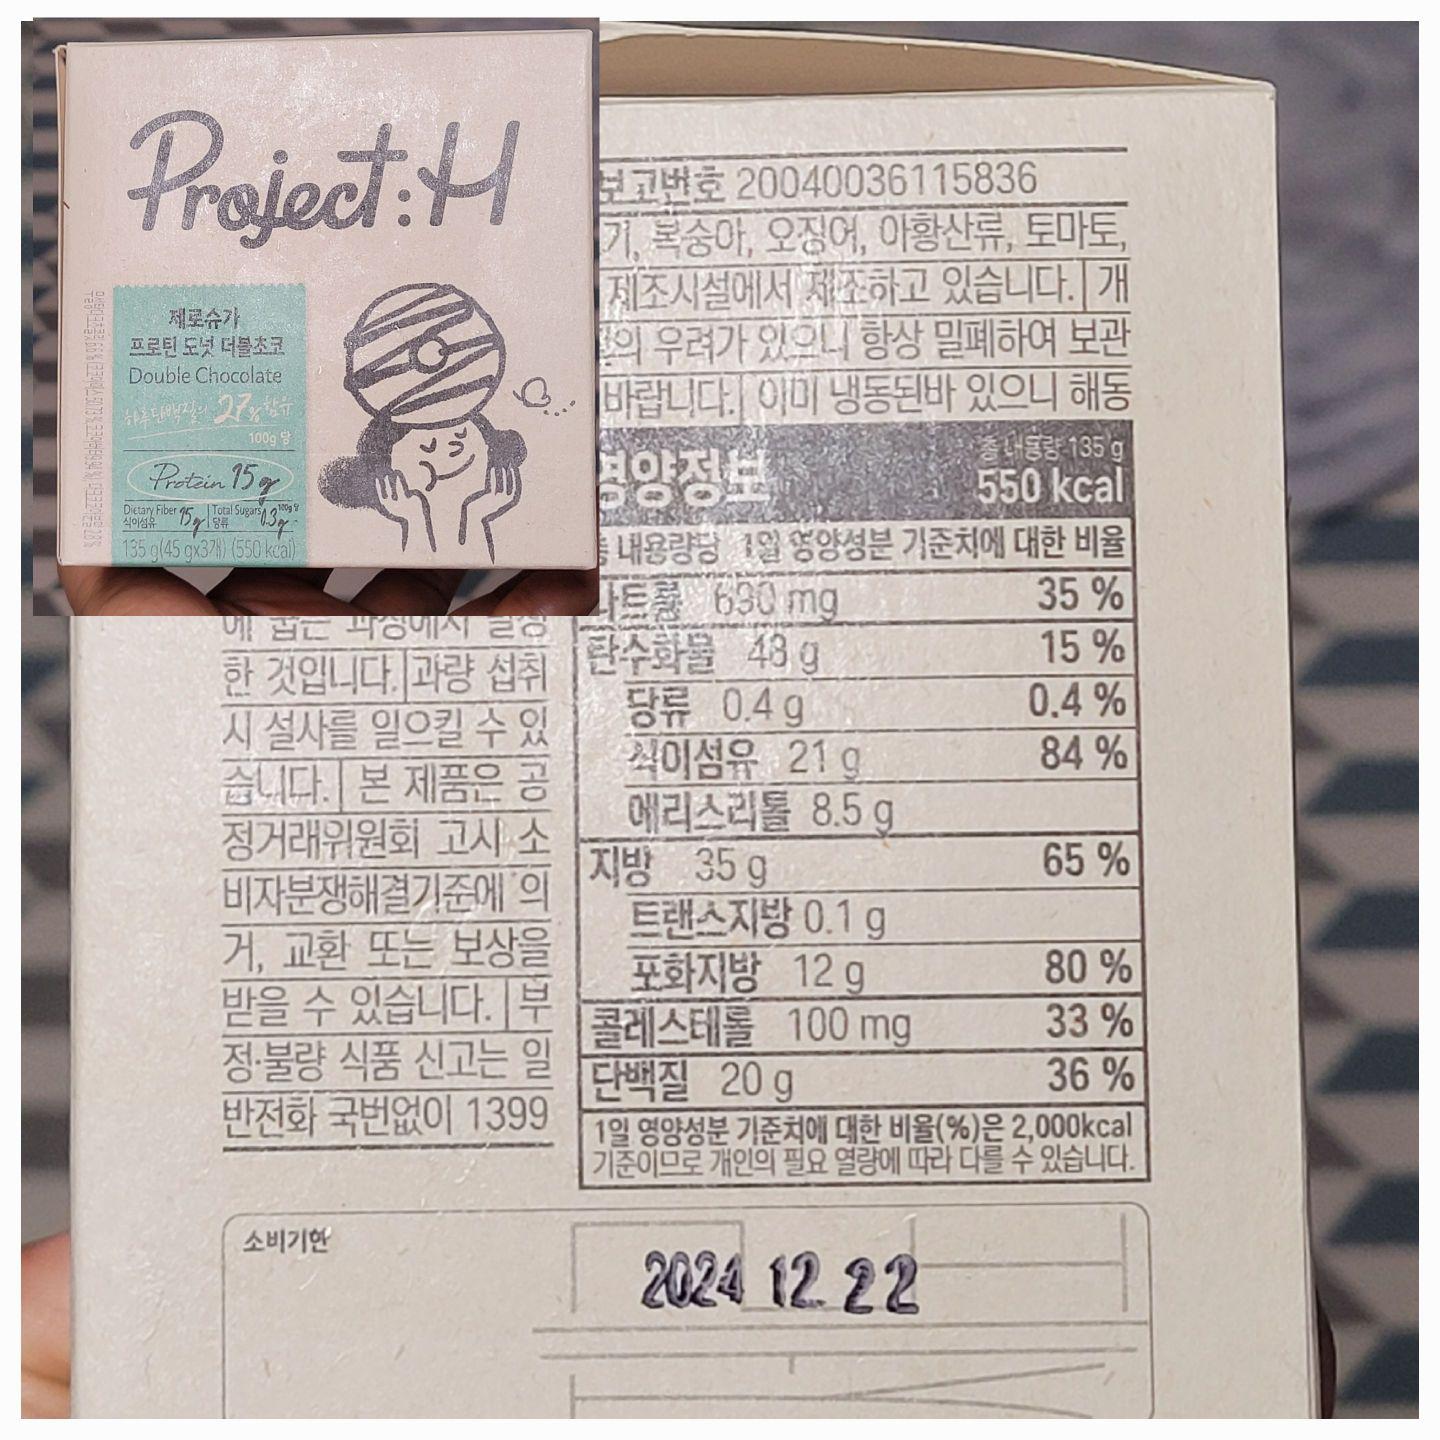 Project:H
제로슈가
프로틴 도넛 더블초코
Double Chocolate
하루단백질의 27% 함유
100g 당
Protein 15g
Dietary Fiber 15g
식이섬유
Total Sugars 0.3g 100g 당
당류
135 g(45 gx3개) (550 kcal)
보고번호 20040036115836
기, 복숭아, 오징어, 아황산류, 토마토,
제조시설에서 제조하고 있습니다. | 개
의 우려가 있으니 항상 밀폐하여 보관
바랍니다. | 이미 냉동된바 있으니 해동
영양정보
총 내용량 135 g
550 kcal
총 내용량당 1일 영양성분 기준치에 대한 비율
나트륨 630 mg 35 %
탄수화물 48 g 15 %
당류 0.4 g 0.4 %
식이섬유 21 g 84 %
에리스리톨 8.5 g
지방 35 g 65 %
트랜스지방 0.1 g
포화지방 12 g 80 %
콜레스테롤 100 mg 33 %
단백질 20 g 36 %
1일 영양성분 기준치에 대한 비율(%)은 2,000kcal
기준이므로 개인의 필요 열량에 따라 다를 수 있습니다.
에 굽는 과정에서 발생
한 것입니다. | 과량 섭취
시 설사를 일으킬 수 있
습니다. | 본 제품은 공
정거래위원회 고시 소
비자분쟁해결기준에 의
거, 교환 또는 보상을
받을 수 있습니다. | 부
정·불량 식품 신고는 일
반전화 국번없이 1399
소비기한
2024 12 22